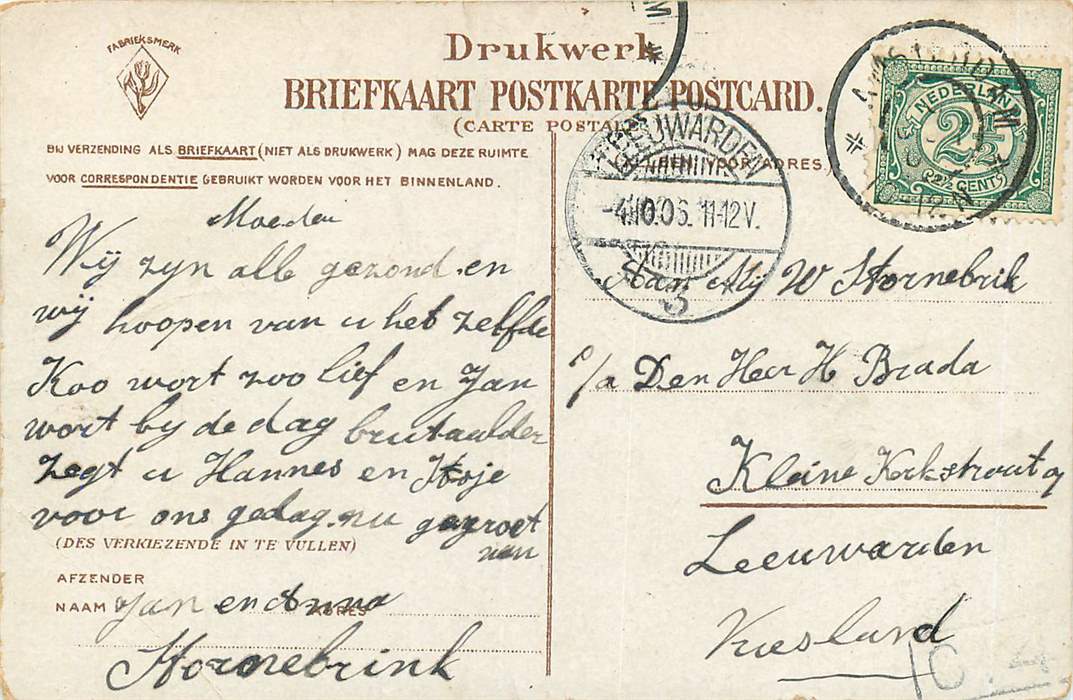 FABRIEKSMERK
Drukwerk
BRIEFKAART POSTKARTE POSTCARD.
(CARTE POSTALE)
BIJ VERZENDING ALS BRIEFKAART (NIET ALS DRUKWERK) MAG DEZE RUIMTE
VOOR CORRESPONDENTIE GEBRUIKT WORDEN VOOR HET BINNENLAND.
Moeder
Wij zyn alle gezond en
wij hoopen van u het zelfde
Koo wort zoo lief en Jan
wort by de dag brutaalder
zegt u Hannes en
voor ons gedag. nu gegroet
van
(DES VERKIEZENDE IN TE VULLEN)
AFZENDER
NAAM Jan en Anna
ADRES
Stornebrink
LEEUWARDEN
-4.10.06. 11-12V.
3
VOOR ADRES)
AMSTERDAM
12 N
NEDERLAND
2½
(2½ CENT)
Aan Mij W Stornebrik
c/a Den Heer H Brada
Kleine Kerkstraat
Leeuwarden
Vriesland